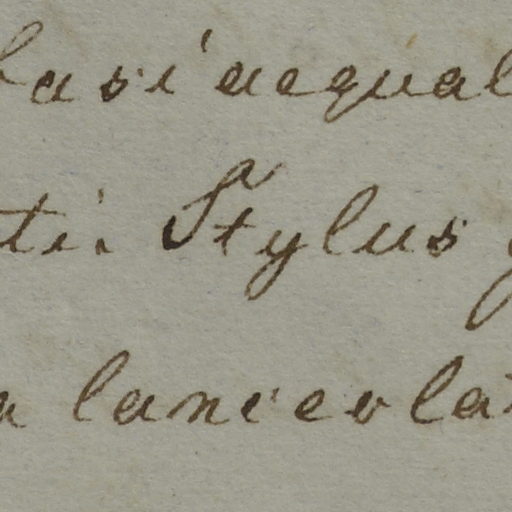 basi aequal
ti. Stylus
a lanceola